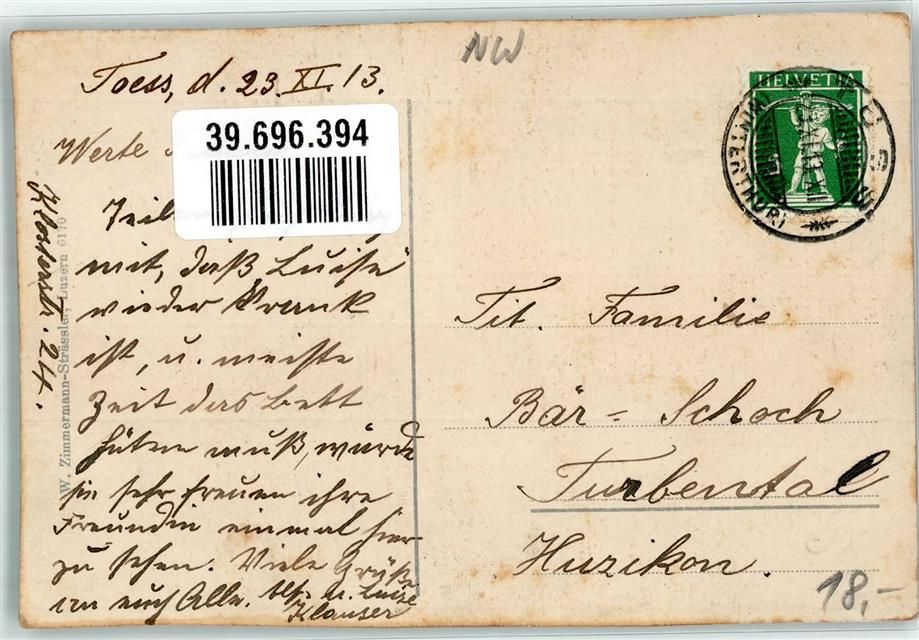 NW
Toess, d. 23. XI. 13.
HELVETIA
(WINTERTHUR)
39.696.394
Werte
Teil
mit, daß Luise
wieder krank
ist, u. meiste
Zeit das Bett
hüten muß, würde
sie sehr freuen ihre
Freundin einmal hier
zu sehen. Viele Grüße
an euch Alle. Alf. u. Luise
Klauser
Klosterstr. 24.
W. Zimmermann-Strässler, Luzern 6170
Tit. Familie
Bär = Schoch
Turbental
Huzikon.
18,-